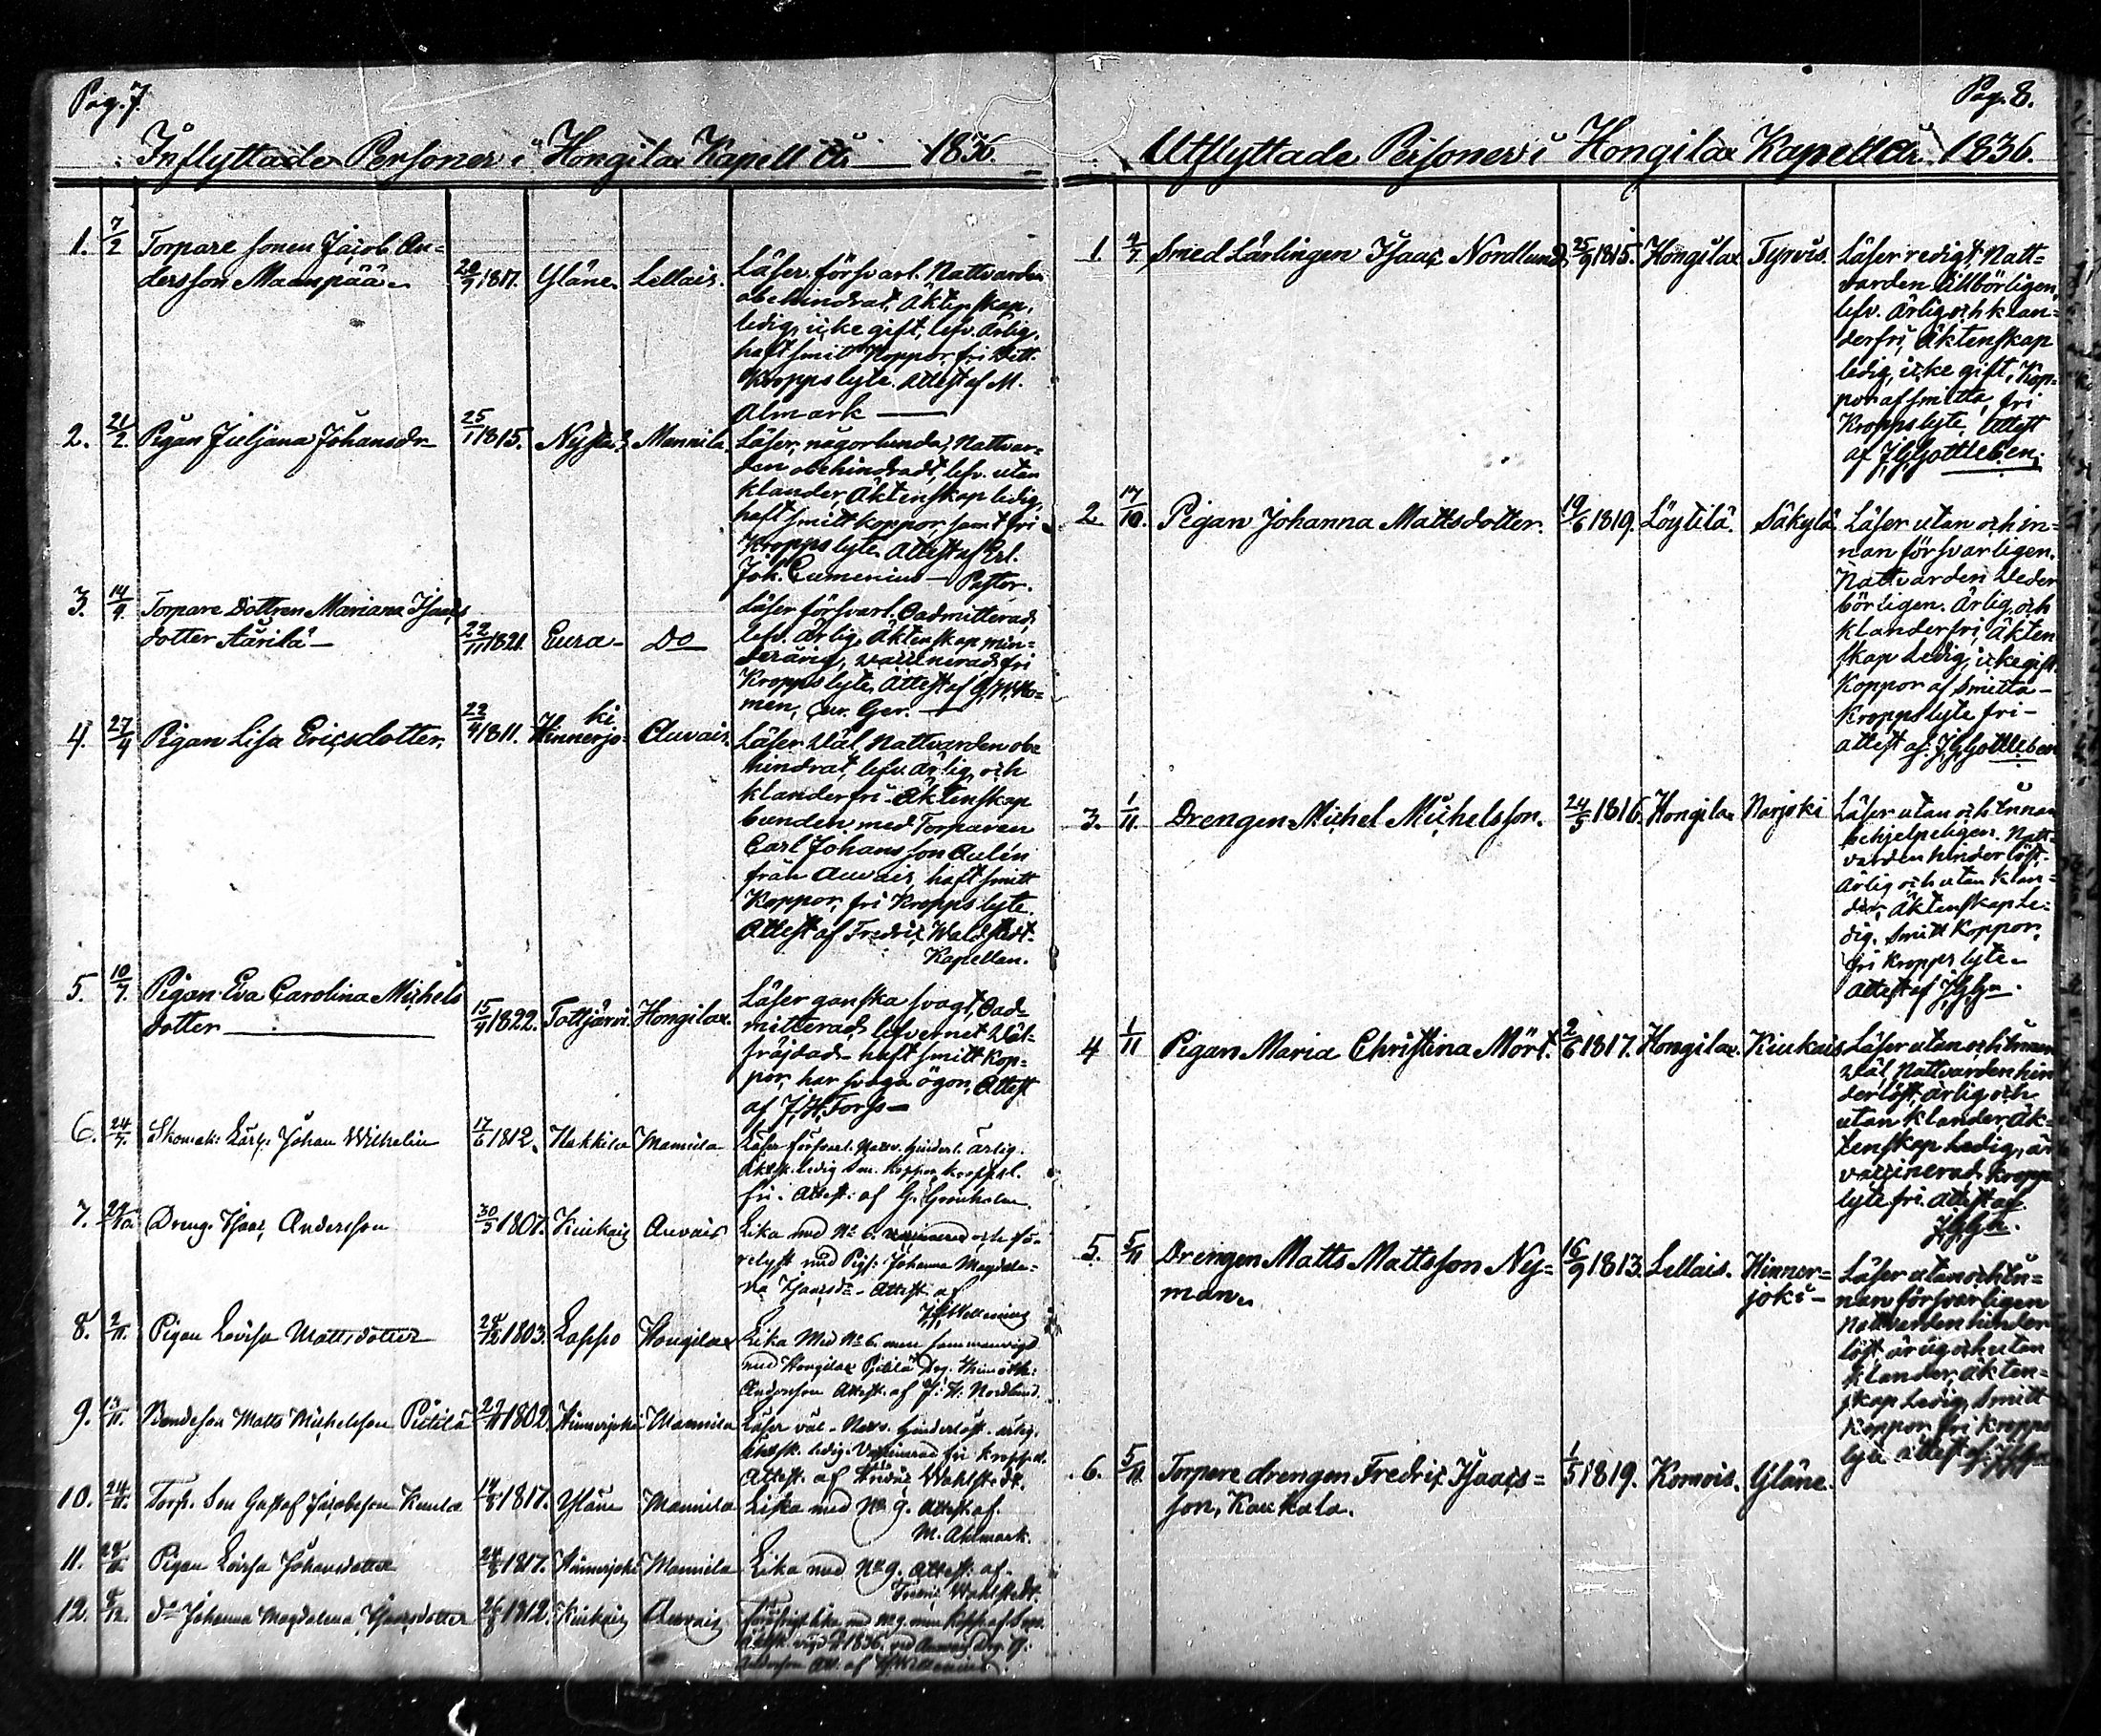 Pag. 7.
Inflyttade Personer i Hongilax Kapell År 1836.
1. 7/2 Torpare sonen Jacob An=
dersson Maanpää 1817. Yläne Lellais. Läser försvarl. Nattvarden
obehindrat, Äktenskap,
ledig, icke gift, lefv. ärlig,
haft smitt Koppor, fri
Kroppslyte. Attest af M.
Almark —
2. 21/2 Pigan Juljana Johansdr 25/1 1815. Nystad Mannila Läser någorlunda, Nattvar=
den obehindradt, lefv. utan
klander Äktenskap ledig,
haft smitt koppor, samt fri
Kroppslyte Attest af
Joh. Eumenius — Pastor.
3. 14/4. Torpare dottren Mariana Isaacs
dotter 22/11 1821. Eura Do Läser försvarl. Oadmitterad,
lefv. ärlig, Äktenskap min=
derårig, vaccinerad, fri
Kroppslyte, Attest af
men,
4. 27/4 Pigan Lisa Ericsdotter, 22/4 1811. Hinnerjo=
ki Auvais. Läser Väl, Nattvarden obe
hindrat, lefv. ärlig och
klanderfri Äktenskap
bunden med Torparen
Carl Johansson Aulén
från Auvais, haft smitt
Koppor, fri Kroppslyte.
Attest af Fredric Waldstedt
Kapellan.
5. 10/7. Pigan Eva Carolina Michels
dotter 15/4 1822. Tottjärvi. Hongilax. Läser ganska svagt, Oad=
mitterad, lefvernet Väl=
fräjdad haft smitt Kop=
por, har svaga ögon, Attest
af J. H. Forss
6. 24/7. Skomak: Lärl: Johan Wilhelm 17/6 1812. Hakkila Mannila Läser försvarl. Nattv. hinderl. ärlig.
Äktsk. ledig Sm. Koppor, kroppsl.
fri. Attest: af G. Grönholm
7. Dreng. Isaac Andersson 30/5 1807. Kiukais Auvais Lika med No 6. och fö=
relyst med Pig: Johanna Magdale=
na Isaacsdr Attest af
8. 2/11. Pigan Lovisa Mattsdotter 1803. Lappo Hongilax Lika Med No 6. men sammanvigd
med Hongilax
Andersson Attest: af J: H: Nordlund
9. Bondeson Matts Michelsson Pietilä 1802. Hinnerjoki Mannila Läser väl. Nattv. hinderlöst. ärlig.
Äktsk. ledig. Vaccinerad fri kroppsl.
Attest. af Fredric Wahlstedt.
10. 24/11. Torp. Son Gustaf Jacobsson 1817. Yläne Mannila Lika med No 9. Attest af.
M. Ahlmark.
11. Pigan Lovisa Johansdotter 1817. Hinnerjoki Mannila Lika med No 9. Attest: af.
Fredric Wahlstedt.
12. do Johanna Magdalena Isaacsdotter 1812. Kiukais Auvais
Pag. 8.
Utflyttade Personer i Hongilax Kapell År 1836.
1. Smed Lärlingen Isaac Nordlund, 25/9 1815. Hongilax Tyrvis. Läser redigt, Natt=
varden tillbörligen,
lefv. ärlig och klan=
derfri, Äktenskap
ledig, icke gift, Kop=
por af smitta, fri
Kroppslyte, Attest
af J G Gottleben,
2. 17/10. Pigan Johanna Mattsdotter. 19/6 1819. Löytilä. Säkylä Läser utan och in=
nan försvarligen.
Nattvarden Veder
börligen. Ärlig, och
klanderfri, Äkten
skap Ledig, icke gift
Koppor af Smitta —
Kroppslyte fri —
attest af J G Gottleben
3. 1/11 Drengen Michel Michelsson. 24/5 1816. Hongilax Norjoki Läser utan och Innan
behjelpeligen. Natt=
varden hinderlöst.
Ärlig och utan klan=
der, Äktenskap Le=
dig. Smitt Koppor,
fri Kroppslyte
Attest af J G Gn.
4 1/11 Pigan Maria Christina Mört. 2/6 1817. Hongilax. Kiukais Läser utan och innan
Väl, Nattvarden hin
derlöst, ärlig och
utan klander, Äk=
tenskap Ledig, är
vaccinerad, Kropps
lyte fri. Attest af
J G Gn.
5. 5/11 Drengen Matts Mattsson Ny=
man. 16/9 1813. Lellais. Hinner=
joki — Läser utan och In=
nan försvarligen
Nattvarden hinder
löst ärlig och utan
klander, Äkten=
skap Ledig, Smitt
Koppor, fri Kropps
lyte attest af
6. 5/11 Torpare drengen Fredric Isaacs=
son, Kaukola. 1/5 1819. Komois. Yläne.